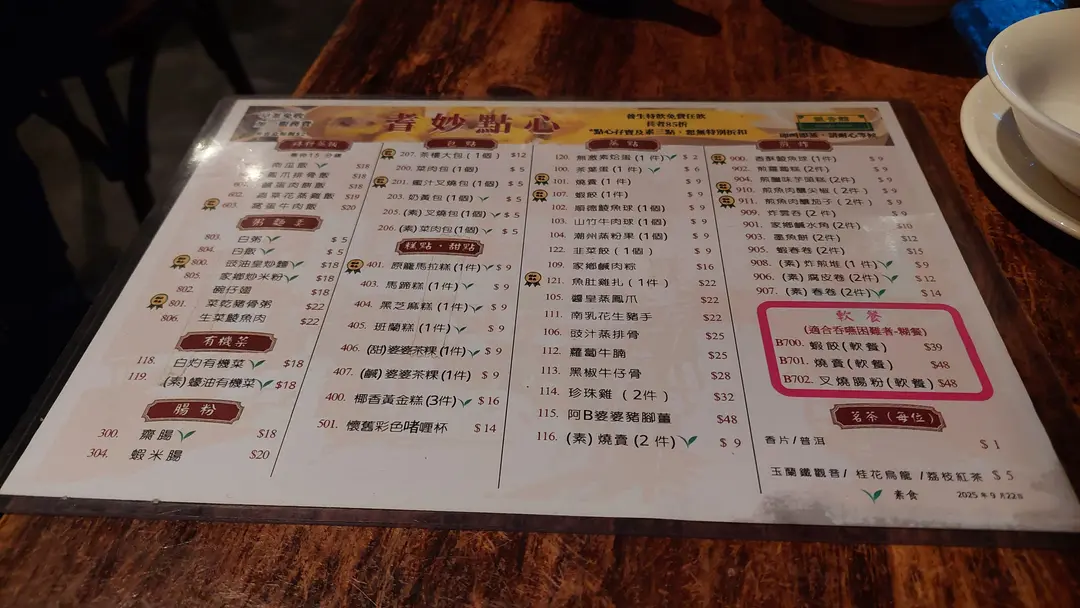 耆妙點心
養生特飲免費任飲
長者85折
*點心孖寶及素三點，恕無特別折扣
即叫即蒸，請耐心等候
需時15分鐘
南瓜飯 $18
鳳爪排骨飯 $18
鹹蛋肉餅飯 $18
602. 蟲草花蒸雞飯 $19
603. 窩蛋牛肉飯 $20
粥麵羹
803. 白粥 $5
804. 白飯 $5
800. 豉油皇炒麵 $18
805. 家鄉炒米粉 $18
802. 碗仔翅 $18
801. 菜乾豬骨粥 $22
806. 生菜鯪魚肉 $22
有機菜
118. 白灼有機菜 $18
119. (素)蠔油有機菜 $18
腸粉
300. 齋腸 $18
304. 蝦米腸 $20
包點
207. 茶樓大包(1個) $12
200. 菜肉包(1個) $5
201. 蜜汁叉燒包(1個) $5
203. 奶黃包(1個) $5
205. (素)叉燒包(1個) $5
206. (素)菜肉包(1個) $5
糕點・甜點
401. 原籠馬拉糕(1件) $9
403. 馬蹄糕(1件) $9
404. 黑芝麻糕(1件) $9
405. 班蘭糕(1件) $9
406. (甜)婆婆茶粿(1件) $9
407. (鹹)婆婆茶粿(1件) $9
400. 椰香黃金糕(3件) $16
501. 懷舊彩色啫喱杯 $14
蒸點
120. 無激素烚蛋(1件) $2
100. 茶葉蛋(1件) $6
101. 燒賣(1件) $9
107. 蝦餃(1件) $9
102. 順德鯪魚球(1個) $9
103. 山竹牛肉球(1個) $9
104. 潮州蒸粉果(1個) $9
122. 韮菜餃(1個) $9
109. 家鄉鹹肉粽 $16
121. 魚肚雞扎(1件) $22
105. 醬皇蒸鳳爪 $22
111. 南乳花生豬手 $22
106. 豉汁蒸排骨 $25
112. 蘿蔔牛腩 $25
113. 黑椒牛仔骨 $28
114. 珍珠雞(2件) $32
115. 阿B婆婆豬腳薑 $48
116. (素)燒賣(2件) $9
煎炸
900. 香酥鯪魚球(1件) $9
902. 煎蘿蔔糕(2件) $9
904. 煎臘味芋頭糕(2件) $9
910. 煎魚肉釀尖椒(2件) $9
911. 煎魚肉釀茄子(2件) $9
909. 炸雲吞(2件) $9
901. 家鄉鹹水角(2件) $10
903. 墨魚餅(2件) $12
905. 蝦春卷(2件) $15
908. (素)炸煎堆(1件) $9
906. (素)腐皮卷(2件) $12
907. (素)春卷(2件) $14
軟餐
(適合吞嚥困難者-糊餐)
B700. 蝦餃(軟餐) $39
B701. 燒賣(軟餐) $48
B702. 叉燒腸粉(軟餐) $48
茗茶(每位)
香片/普洱 $1
玉蘭鐵觀音/桂花烏龍/荔枝紅茶 $5
素食
2025年9月22日